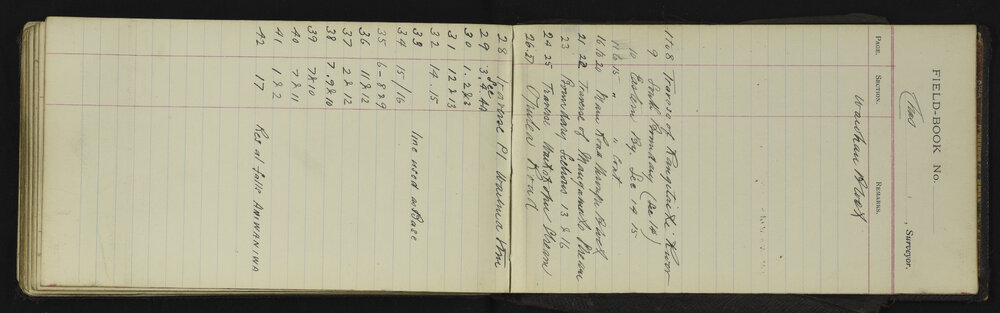 FIELD-BOOK No.
, Surveyor.
PAGE. SECTION. REMARKS.
Block
1 to 8 Traverse of Rangitaiki River
9 South Boundary (Sec 14)
10 Eastern Bdy. Sec 14 15
" " Cont
16 to 20 Main Road through Block
21 22 Traverse of Mangamako Stream
23 Boundary Sections 13 & 16
24 25 Traverse Stream
26.27 Road
28 Traverse Pt Stm
29 Sec 3. 4. 4A
30 1. 2 & 3
31 12 & 13
32 14. 15
33 line used as Base
34 15/16
35 6-8 & 9
36 11 & 12
37 2 & 12
38 7. 9 & 10
39 7 & 10
40 7 & 11
41 1 & 2
42 17 Res at falls ANIWANIWA